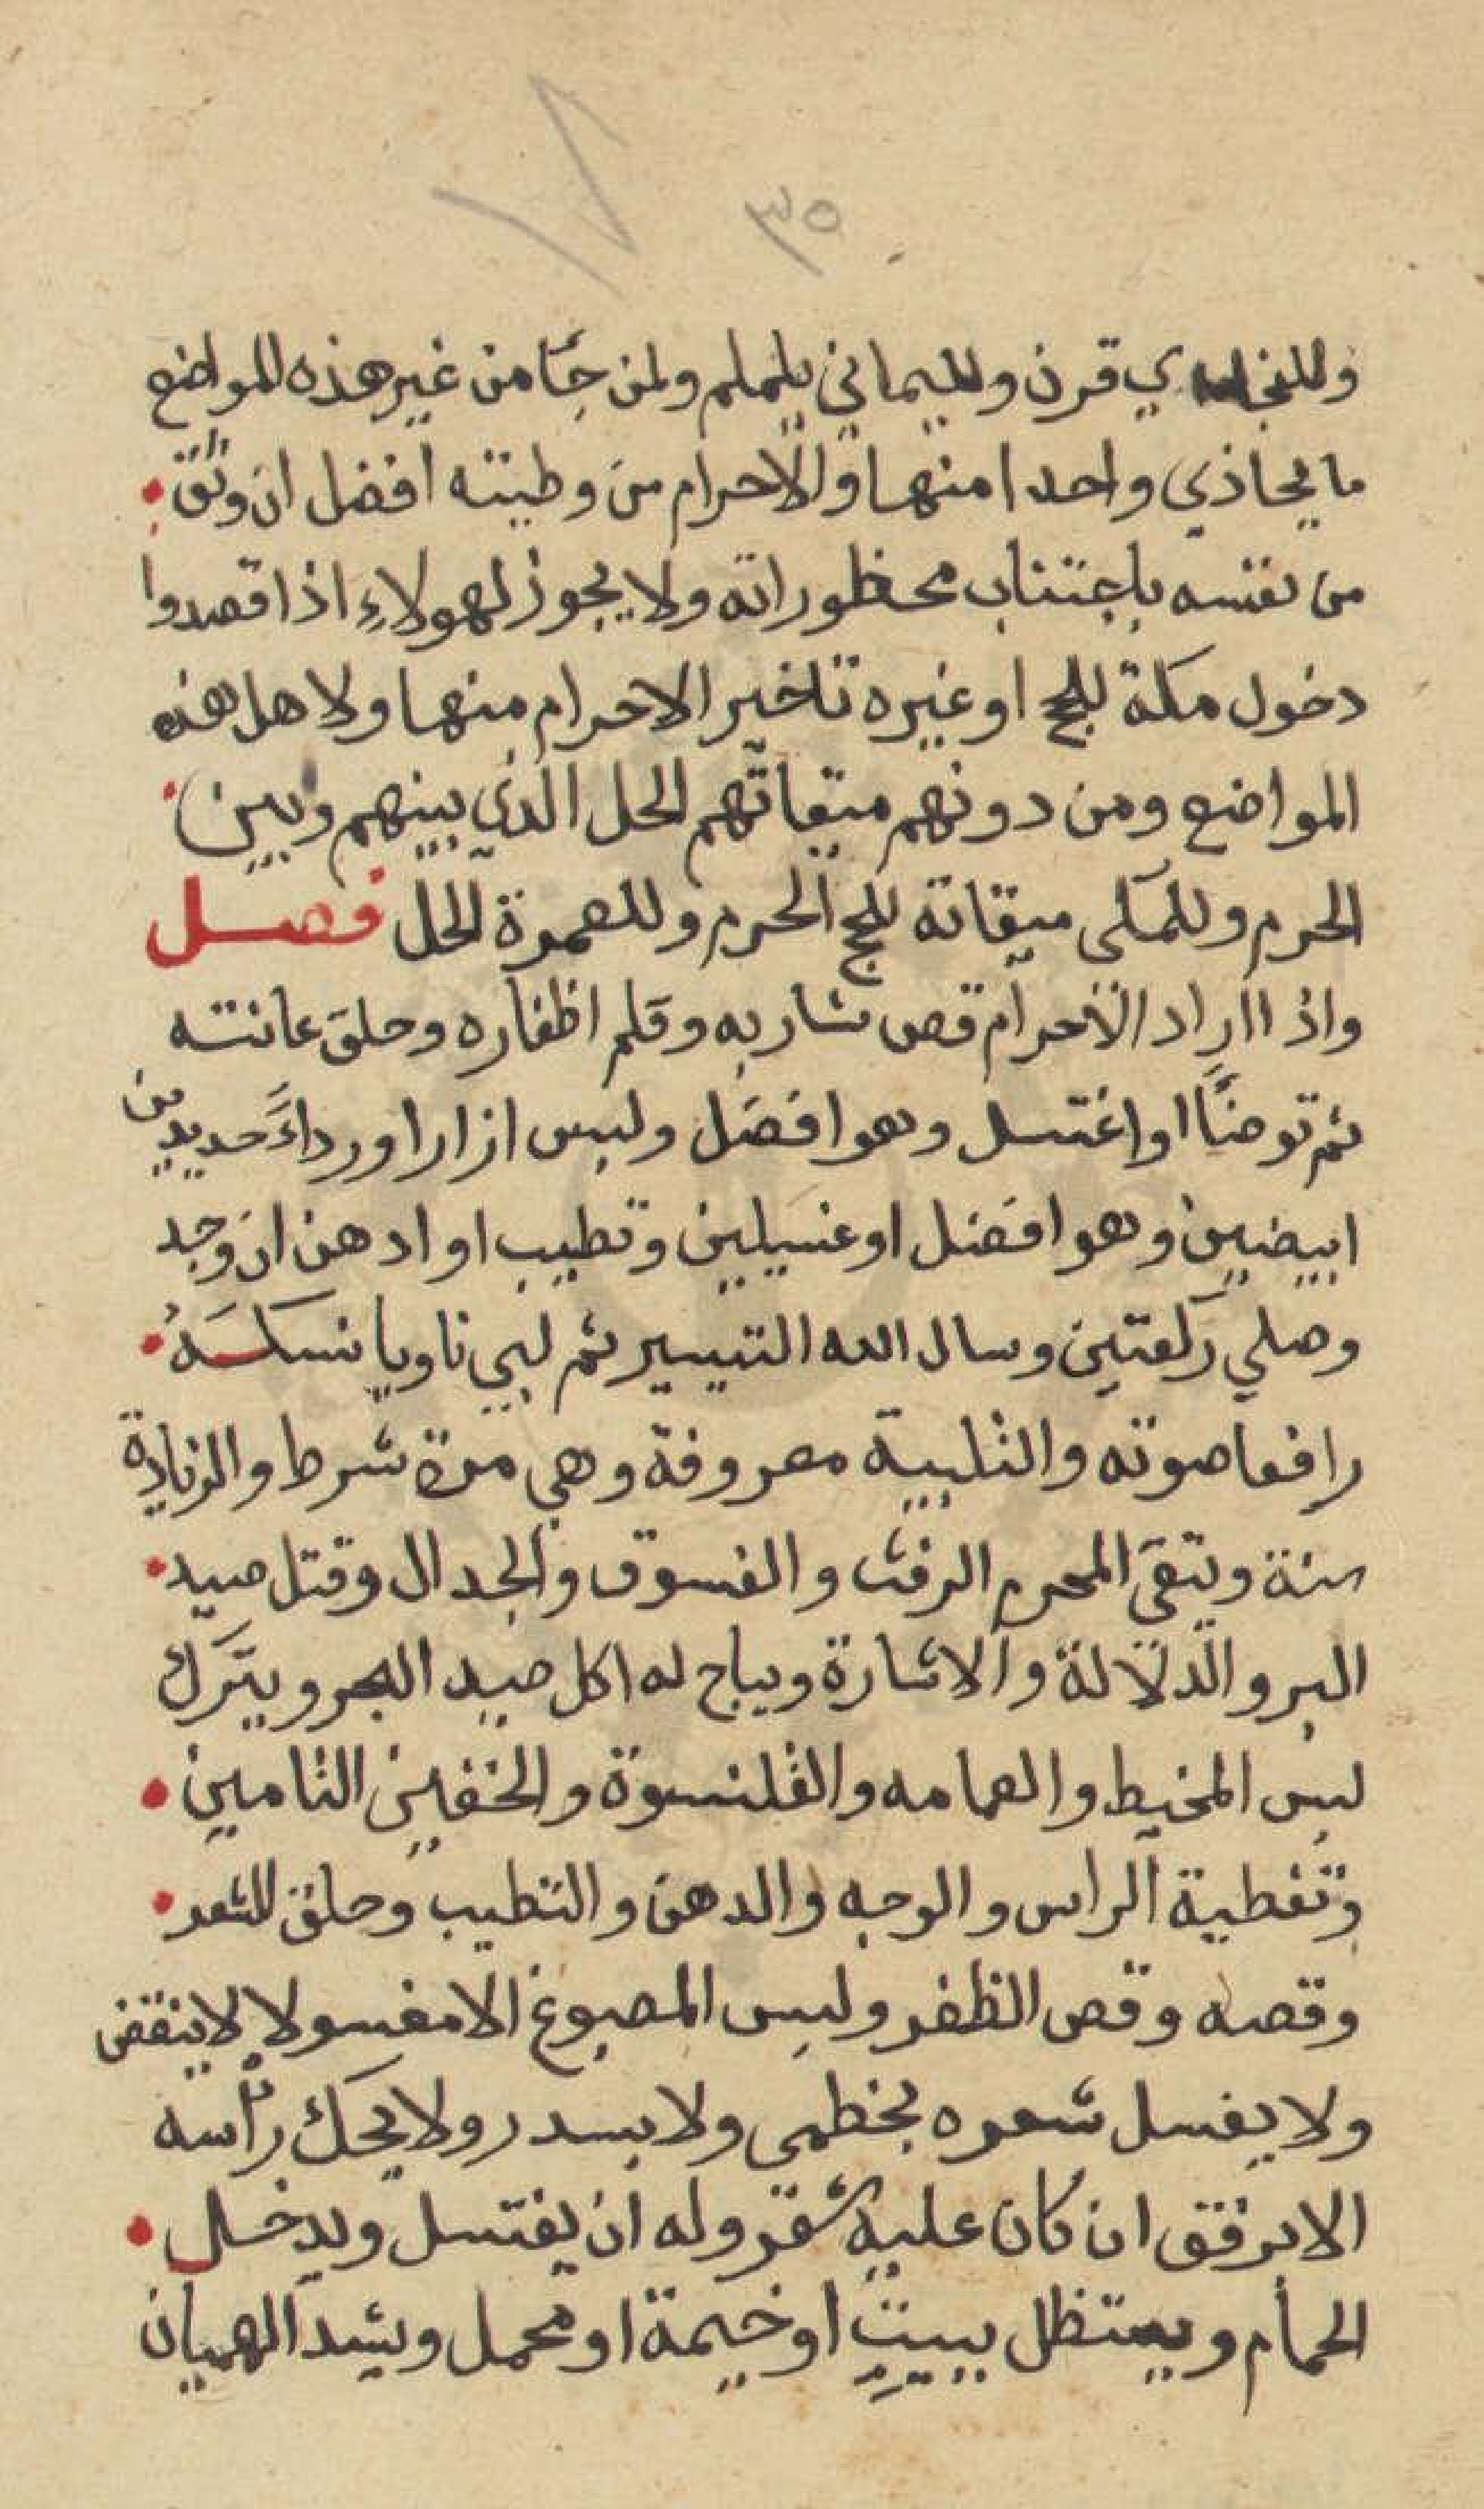 ٣٥
وللنجدي قرن ولليماني يلملم ولمن جآ من غير هذه المواضع
ما يحاذي واحدا منها والاحرام من وطيته افضل ان وثق
من نفسه باجتناب محظوراته ولا يجوز لهولاء اذا قصدوا
دخول مكة للحج او غيره تاخير الاحرام منها ولاهل هذه
المواضع ومن دونهم ميقاتهم الحل الذي بينهم وبين
الحرم وللمكى ميقاته للحج الحرم وللعمرة الحل فصل
واذا اراد الاحرام قص شاربه وقلم اظفاره وحلق عانته
ثم توضأ او اغتسل وهو افضل ولبس ازارا ورداءً جديدين
ابيضين وهو افضل او غسيلين وتطيب او ادهن ان وجد
وصلي ركعتين وسال الله التيسير ثم لبي ناويا نسكه
رافعا صوته والتلبية معروفة وهي مرة شرط والزيادة
سنة ويتقى المحرم الرفث والفسوق والجدال وقتل صيد
البر والدلالة والاشارة ويباح له اكل صيد البحر ويترك
لبس المخيط والعمامه والقلنسوة والخفين التامين
وتغطية الراس والوجه والدهن والتطيب وحلق الشعر
وقصه وقص الظفر ولبس المصبوغ الا مغسولا لا ينفض
ولا يغسل شعره بخطمى ولا بسدر ولا يحك رأسه
الا برفق ان كان عليه شعر وله ان يغتسل ويدخل
الحمام ويستظل ببيت او خيمة او محمل ويشد الهميان